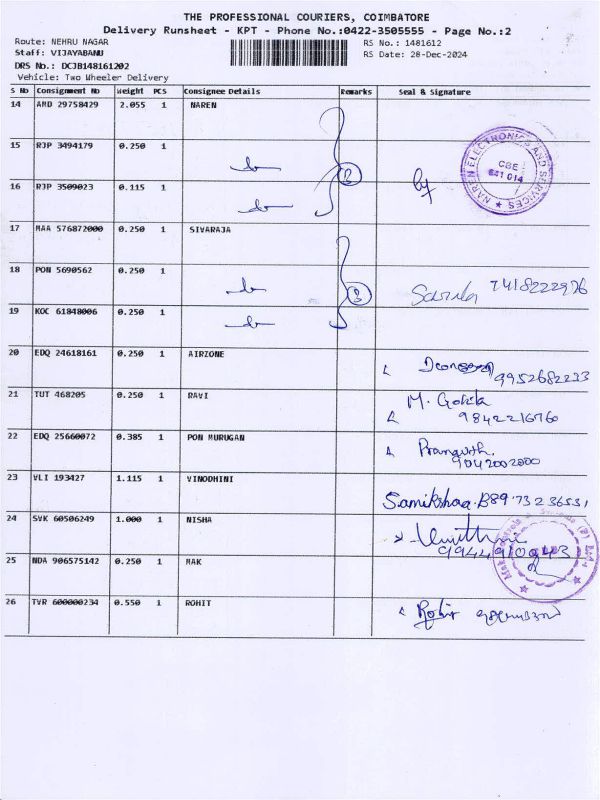 THE PROFESSIONAL COURIERS, COIMBATORE
Delivery Runsheet - KPT - Phone No.:0422-3505555 - Page No.:2
Route: NEHRU NAGAR RS No.: 1481612
Staff: VIJAYABANU RS Date: 28-Dec-2024
DRS No.: DCJB148161202
Vehicle: Two Wheeler Delivery
S No Consignment No Weight PCS Consignee Details Remarks Seal & Signature
14 AMD 29758429 2.055 1 NAREN
15 RJP 3494179 0.250 1
NAREN ELECTRONICS AND SERVICES
CBE
641 014
16 RJP 3509023 0.115 1
17 MAA 576872000 0.250 1 SIVARAJA
18 PON 5690562 0.250 1 3 7418222976
19 KOC 61848006 0.250 1
20 EDQ 24618161 0.250 1 AIRZONE
9952682233
21 TUT 468205 0.250 1 RAVI M. Gokila
9842216760
22 EDQ 25660072 0.385 1 PON MURUGAN
9042002000
23 VLI 193427 1.115 1 VINODHINI Samikshaa.B 8973236531
24 SVK 60506249 1.000 1 NISHA
9944910943
25 NDA 906575142 0.250 1 MAK
26 TVR 600000234 0.550 1 ROHIT Rohit